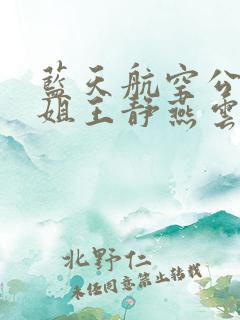 藍天航空公
姐王靜燕雲
北野仁
未經同意禁止轉載